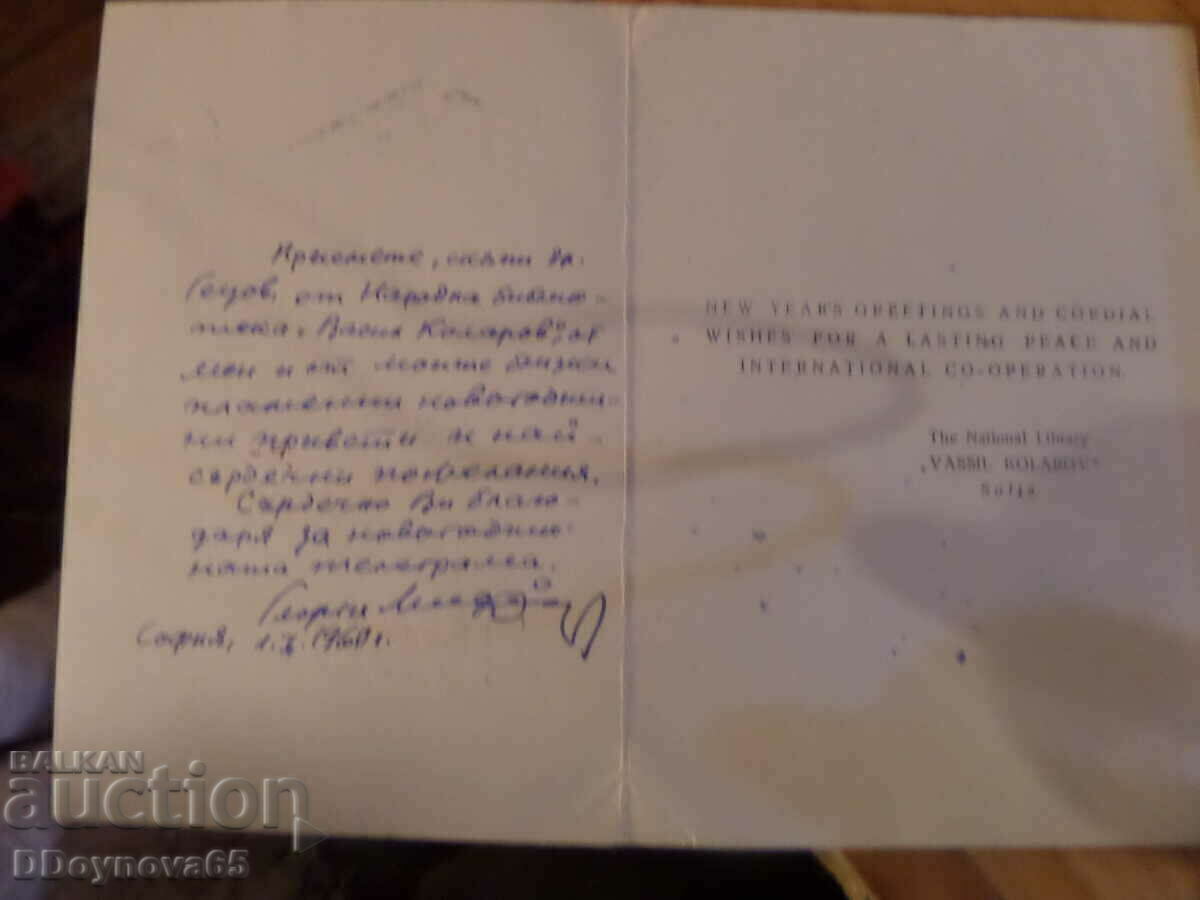 Приемете, скъпи др.
Гецов, от Народна библио-
тека „Васил Коларов", от
мен и от моите близки
пламенни новогодиш-
ни привети и най-
сърдечни пожелания.
Сърдечно Ви благо-
даря за новогодиш-
ната телеграма.
Георги
София, 1.I.1960 г.
NEW YEAR'S GREETINGS AND CORDIAL
WISHES FOR A LASTING PEACE AND
INTERNATIONAL CO-OPERATION
The National Library
„VASSIL KOLAROV"
Sofia
BALKAN
auction
DDoynova65